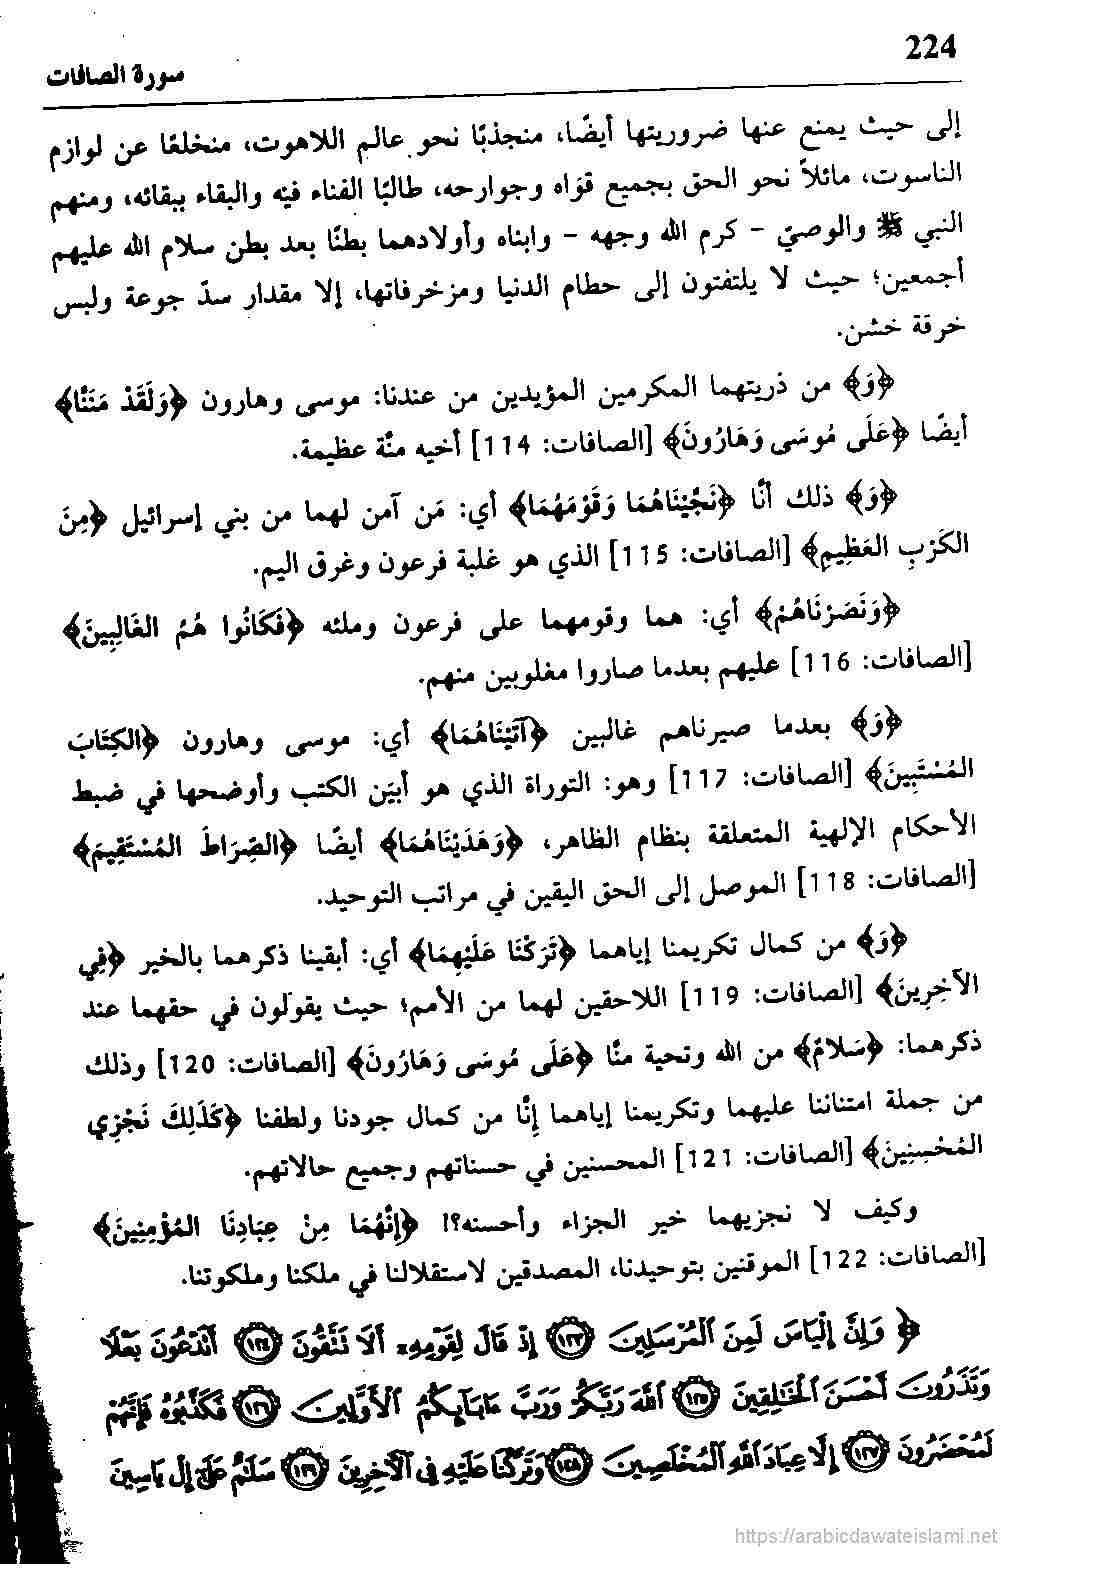 224
سورة الصافات
إلى حيث يمنع عنها ضروريتها أيضًا، منجذبًا نحو عالم اللاهوت، منخلعًا عن لوازم
الناسوت، مائلاً نحو الحق بجميع قوَاه وجوارحه، طالبًا الفناء فيْه والبقاء ببقائه، ومنهم
النبي ﷺ والوصيّ - كرم الله وجهه - وابناه وأولادهما بطنًا بعد بطن سلام الله عليهم
أجمعين؛ حيث لا يلتفتون إلى حطام الدنيا ومزخرفاتها، إلا مقدار سدّ جوعة ولبس
خرقة خشن.
﴿وَ﴾ من ذريتهما المكرمين المؤيدين من عندنا: موسى وهارون ﴿وَلَقَدْ مَنَنَّا﴾
أيضًا ﴿عَلَى مُوسَى وَهَارُونَ﴾ [الصافات: 114] أخيه منَّة عظيمة.
﴿وَ﴾ ذلك أنَّا ﴿نَجَّيْنَاهُمَا وَقَوْمَهُمَا﴾ أي: مَن آمن لهما من بني إسرائيل ﴿مِنَ
الكَرْبِ العَظِيمِ﴾ [الصافات: 115] الذي هو غلبة فرعون وغرق اليم.
﴿وَنَصَرْنَاهُمْ﴾ أي: هما وقومهما على فرعون وملئه ﴿فَكَانُوا هُمُ الغَالِبِينَ﴾
[الصافات: 116] عليهم بعدما صاروا مغلوبين منهم.
﴿وَ﴾ بعدما صيرناهم غالبين ﴿آتَيْنَاهُمَا﴾ أي: موسى وهارون ﴿الكِتَابَ
المُسْتَبِينَ﴾ [الصافات: 117] وهو: التوراة الذي هو أبيَن الكتب وأوضحها في ضبط
الأحكام الإلهية المتعلقة بنظام الظاهر، ﴿وَهَدَيْنَاهُمَا﴾ أيضًا ﴿الصِّرَاطَ المُسْتَقِيمَ﴾
[الصافات: 118] الموصل إلى الحق اليقين في مراتب التوحيد.
﴿وَ﴾ من كمال تكريمنا إياهما ﴿تَرَكْنَا عَلَيْهِمَا﴾ أي: أبقينا ذكرهما بالخير ﴿فِي
الآخِرِينَ﴾ [الصافات: 119] اللاحقين لهما من الأمم؛ حيث يقولون في حقهما عند
ذكرهما: ﴿سَلامٌ﴾ من الله وتحية منَّا ﴿عَلَى مُوسَى وَهَارُونَ﴾ [الصافات: 120] وذلك
من جملة امتناننا عليهما وتكريمنا إياهما إنَّا من كمال جودنا ولطفنا ﴿كَذَلِكَ نَجْزِي
المُحْسِنِينَ﴾ [الصافات: 121] المحسنين في حسناتهم وجميع حالاتهم.
وكيف لا نجزيهما خير الجزاء وأحسنه؟! ﴿إِنَّهُمَا مِنْ عِبَادِنَا المُؤْمِنِينَ﴾
[الصافات: 122] الموقنين بتوحيدنا، المصدقين لاستقلالنا في ملكنا وملكوتنا.
﴿ وَإِنَّ إِلْيَاسَ لَمِنَ ٱلْمُرْسَلِينَ ١٢٣ إِذْ قَالَ لِقَوْمِهِۦٓ أَلَا تَتَّقُونَ ١٢٤ أَتَدْعُونَ بَعْلًا
وَتَذَرُونَ أَحْسَنَ ٱلْخَـٰلِقِينَ ١٢٥ ٱللَّهَ رَبَّكُمْ وَرَبَّ ءَابَآئِكُمُ ٱلْأَوَّلِينَ ١٢٦ فَكَذَّبُوهُ فَإِنَّهُمْ
لَمُحْضَرُونَ ١٢٧ إِلَّا عِبَادَ ٱللَّهِ ٱلْمُخْلَصِينَ ١٢٨ وَتَرَكْنَا عَلَيْهِ فِى ٱلْآخِرِينَ ١٢٩ سَلَـٰمٌ عَلَىٰٓ إِلْ يَاسِينَ
https://arabicdawateislami.net